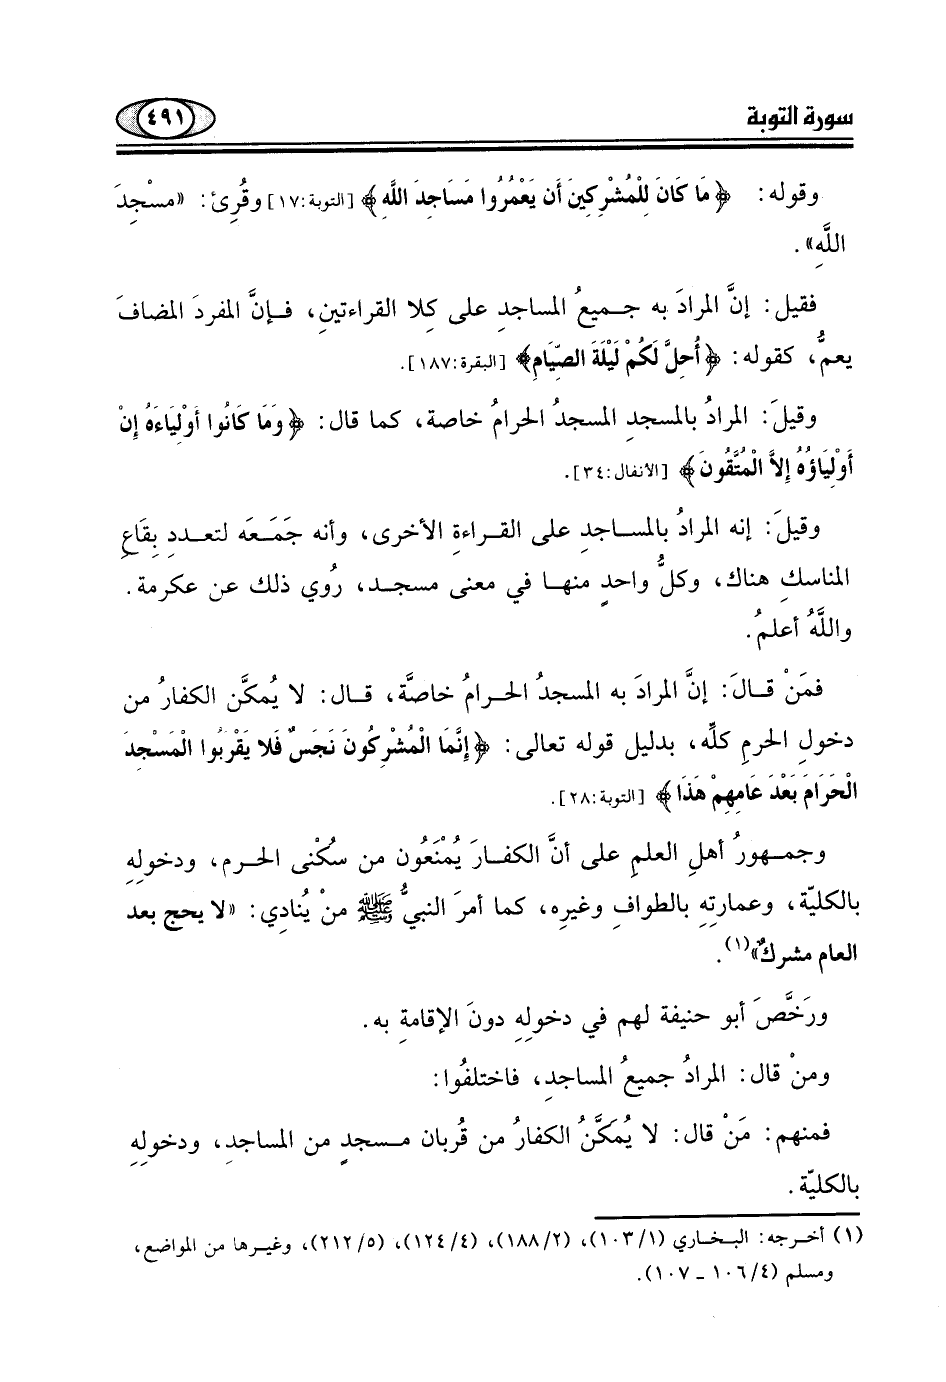 سورة التوبة
٤٩١
وقوله: ﴿مَا كَانَ لِلْمُشْرِكِينَ أَن يَعْمُرُوا مَسَاجِدَ اللَّه﴾ [التوبة:١٧] وقُرِئ: «مسْجِدَ
اللَّهِ».
فقيل: إنَّ المرادَ به جميعُ المساجدِ على كِلا القراءتينِ، فإنَّ المفردَ المضافَ
يعمُّ، كقوله: ﴿أُحِلَّ لَكُمْ لَيْلَةَ الصِّيَامِ﴾ [البقرة:١٨٧].
وقيلَ: المرادُ بالمسجدِ المسجدُ الحرامُ خاصة، كما قال: ﴿وَمَا كَانُوا أَوْلِيَاءَهُ إِنْ
أَوْلِيَاؤُهُ إِلاَّ الْمُتَّقُونَ﴾ [الأنفال:٣٤].
وقيلَ: إنه المرادُ بالمساجدِ على القراءةِ الأخرى، وأنه جَمَعَه لتعددِ بِقَاعِ
المناسكِ هناك، وكلُّ واحدٍ منها في معنى مسجد، رُوي ذلك عن عكرمة.
واللَّهُ أعلمُ.
فمَنْ قالَ: إنَّ المرادَ به المسجدُ الحرامُ خاصَّة، قال: لا يُمكَّن الكفارُ من
دخولِ الحرمِ كلِّه، بدليل قوله تعالى: ﴿إِنَّمَا الْمُشْرِكُونَ نَجَسٌ فَلا يَقْرَبُوا الْمَسْجِدَ
الْحَرَامَ بَعْدَ عَامِهِمْ هَذَا﴾ [التوبة:٢٨].
وجمهورُ أهلِ العلمِ على أنَّ الكفارَ يُمْنَعُون من سُكْنى الحرم، ودخولِهِ
بالكليّة، وعمارتِهِ بالطوافِ وغيرِه، كما أمرَ النبيُّ ﷺ منْ يُنَادِي: «لا يحج بعد
العام مشركٌ»(١).
ورَخَّصَ أبو حنيفة لهم في دخولِهِ دونَ الإقامةِ به.
ومنْ قال: المرادُ جميعُ المساجدِ، فاختلفُوا:
فمنهم: مَنْ قال: لا يُمكَّنُ الكفارُ من قُربان مسجدٍ من المساجدِ، ودخولِهِ
بالكليّة.
(١) أخرجه: البخاري (١/١٠٣)، (٢/١٨٨)، (٤/١٢٤)، (٥/٢١٢)، وغيرها من المواضع،
ومسلم (٤/١٠٦ - ١٠٧).